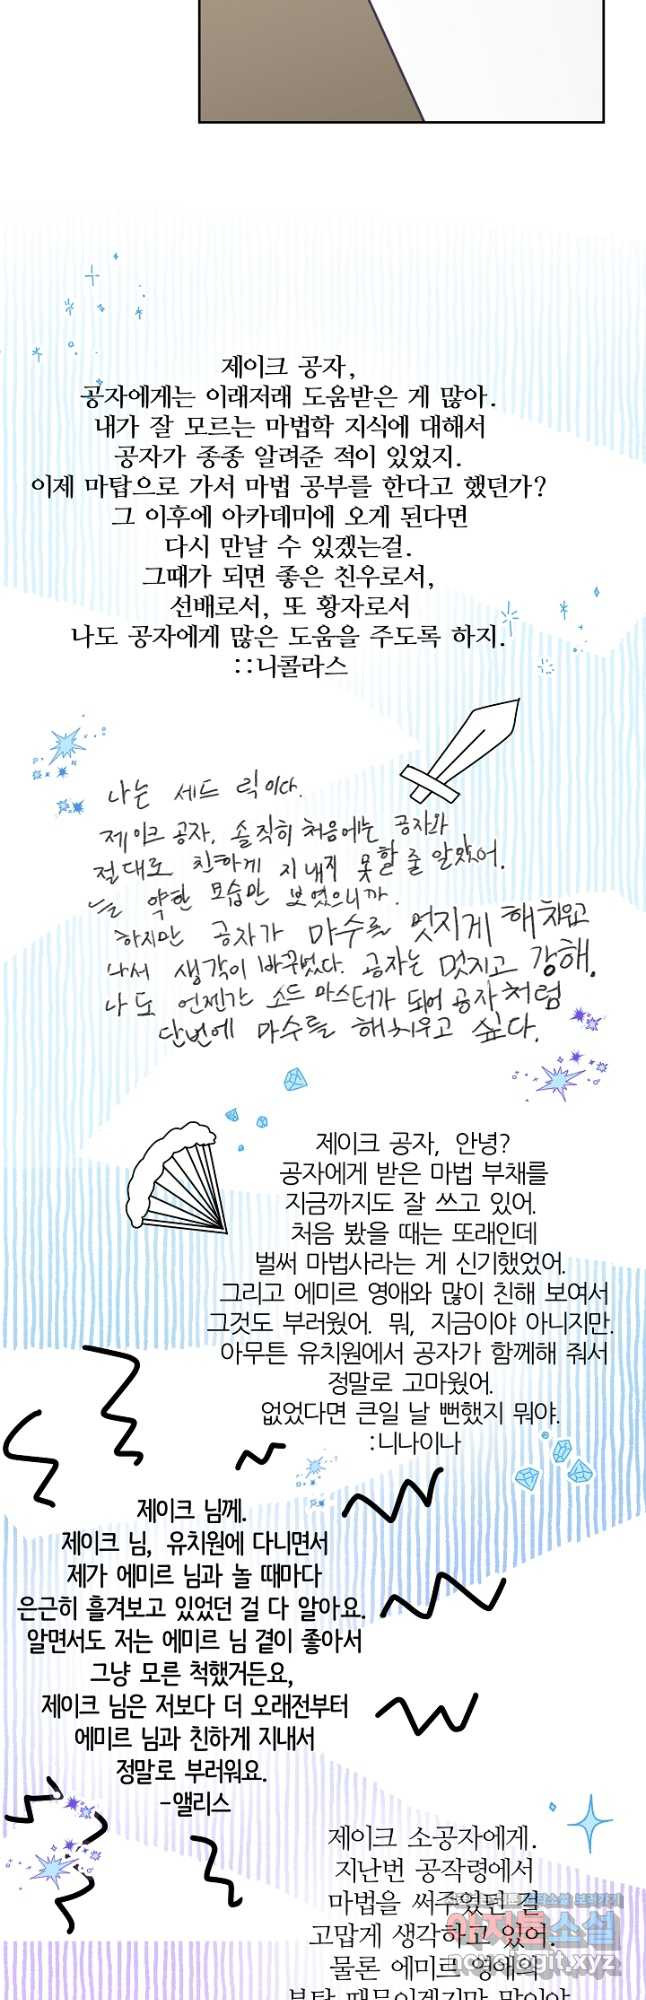 제이크 공자,
공자에게는 이래저래 도움받은 게 많아.
내가 잘 모르는 마법학 지식에 대해서
공자가 종종 알려준 적이 있었지.
이제 마탑으로 가서 마법 공부를 한다고 했던가?
그 이후에 아카데미에 오게 된다면
다시 만날 수 있겠는걸.
그때가 되면 좋은 친우로서,
선배로서, 또 황자로서
나도 공자에게 많은 도움을 주도록 하지.
::니콜라스
나는 세드릭이다.
제이크 공자, 솔직히 처음에는 공자와
절대로 친하게 지내지 못할 줄 알았어.
늘 약한 모습만 보였으니까.
하지만 공자가 마수를 멋지게 해치우고
나서 생각이 바뀌었다. 공자는 멋지고 강해.
나도 언젠가 소드 마스터가 되어 공자처럼
단번에 마수를 해치우고 싶다.
제이크 공자, 안녕?
공자에게 받은 마법 부채를
지금까지도 잘 쓰고 있어.
처음 봤을 때는 또래인데
벌써 마법사라는 게 신기했었어.
그리고 에미르 영애와 많이 친해 보여서
그것도 부러웠어. 뭐, 지금이야 아니지만.
아무튼 유치원에서 공자가 함께해 줘서
정말로 고마웠어.
없었다면 큰일 날 뻔했지 뭐야.
:니나이나
제이크 님께.
제이크 님, 유치원에 다니면서
제가 에미르 님과 놀 때마다
은근히 흘겨보고 있었던 걸 다 알아요.
알면서도 저는 에미르 님 곁이 좋아서
그냥 모른 척했거든요,
제이크 님은 저보다 더 오래전부터
에미르 님과 친하게 지내서
정말로 부러워요.
-앨리스
제이크 소공자에게.
지난번 공작령에서
마법을 써주었던 걸
고맙게 생각하고 있어.
물론 에미르 영애의
부탁 때문이겠지만 말이야